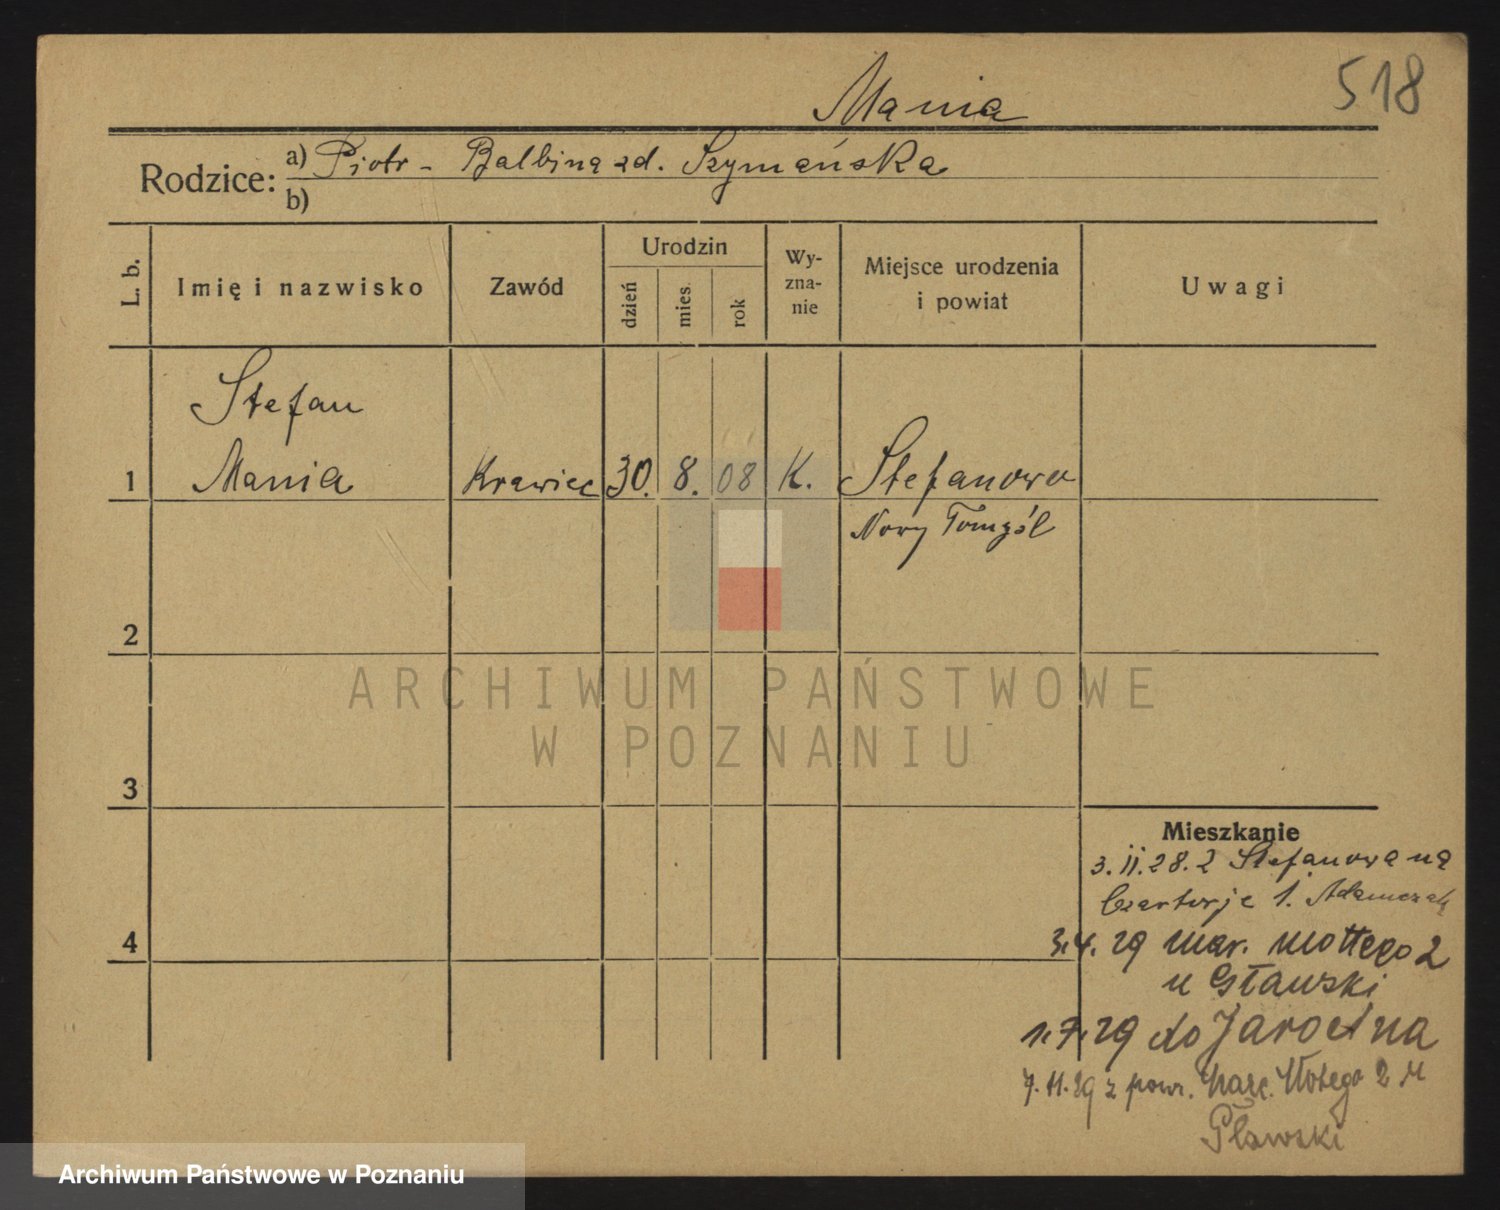 518
Mania
Rodzice: a) Piotr - Balbina zd. Szymańska
b)
L. b.
Imię i nazwisko
Zawód
Urodzin
dzień
mies.
rok
Wy-
zna-
nie
Miejsce urodzenia
i powiat
Uwagi
Stefan
1 Mania Krawiec 30. 8. 08 K. Stefanowo
Nowy Tomyśl
2
ARCHIWUM PAŃSTWOWE
W POZNANIU
3
Mieszkanie
3. 11. 28. z Stefanowa na
1. Adamczak
4
3.4. 29 mar. mottego 2
u Gławski
1.7.29 do Jarocina
7. 11. 29 z powr. 2 u
Gławski
Archiwum Państwowe w Poznaniu